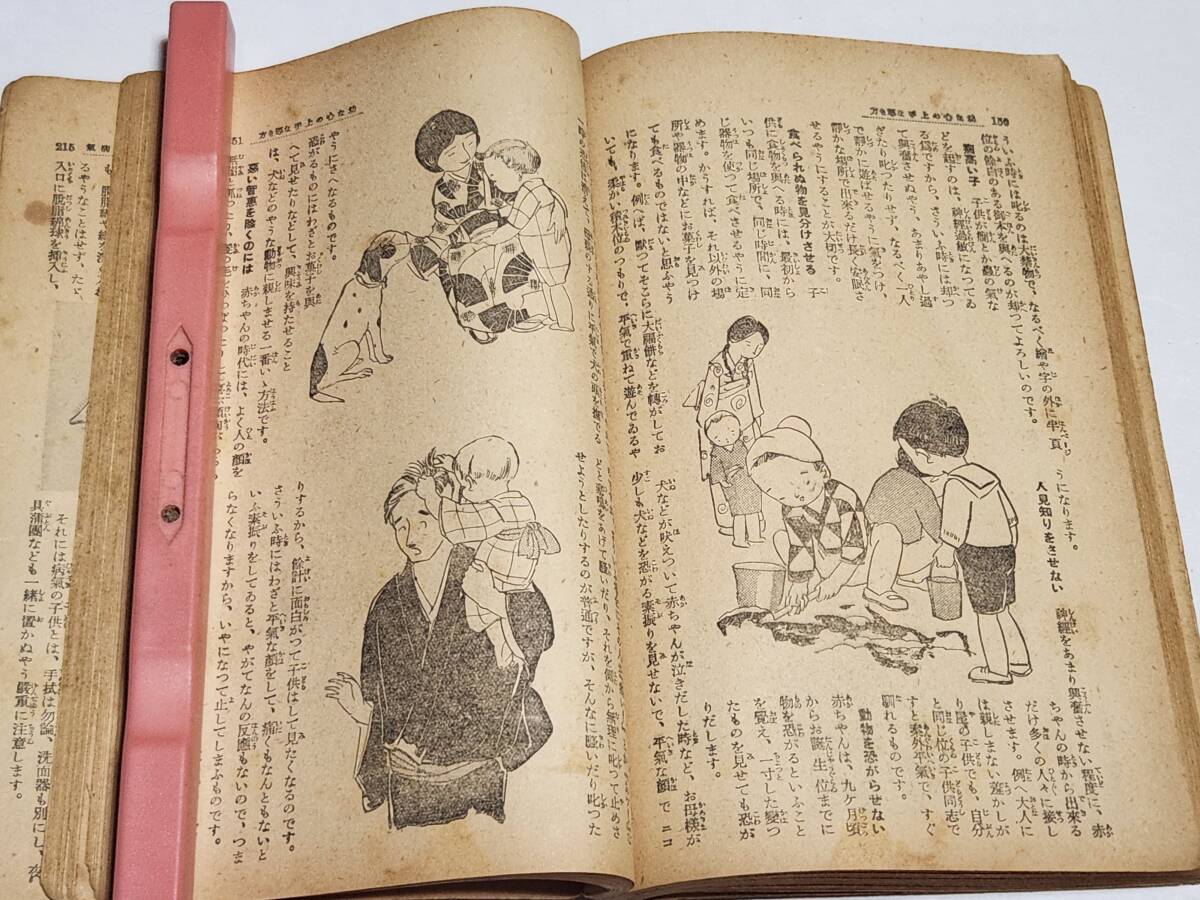 幼な心の上手な導き方
150
ういふ時には叱るのは大禁物で、なるべく繪や字の外に半頁
位の餘白のある御本を與へるのが却つてよろしいのです。
癇高い子 子供が癇とか蟲の氣な
どを起すのは、神經過敏になつてゐ
る爲ですから、さういふ時には却つ
て興奮させぬやう、あまりあやし過
ぎたり叱つたりせず、なるべく人
で靜かに遊ばせるやうに氣をつけ、
靜かな場所で出來るだけ長く安眠さ
せるやうにすることが大切です。
食べられぬ物を見分けさせる 子
供に食物を與へる時には、最初から
いつも同じ場所で、同じ時間に、同
じ器物を使つて食べさせるやうに定
めます。かうすれば、それ以外の場
所や器物の中などにお菓子を見つけ
ても食べるものではないと思ふやう
になります。例へば、默つてそこらに大福餅などを轉がしてお
いても、柔かい積木位のつもりで、平氣で重ねて遊んでゐるや
うになります。
人見知りをさせない
神經をあまり興奮させない程度に、赤
ちやんの時から出來る
だけ多くの人々に接し
させます。例へ大人に
は親しまない癖かしが
り屋の子供でも、自分
と同じ位の子供同志で
すと案外平氣で、すぐ
馴れるものです。
動物を恐がらせない
赤ちやんは、九ケ月頃
からお誕生位までに
物を恐がるといふこと
を覺え、一寸した變つ
たものを見せても恐が
りだします。
犬などが吠えついて赤ちやんが泣きだした時など、お母樣が
少しも犬などを恐がる素振りを見せないで、平氣な顏でニコ
幼な心の上手な導き方
51
せようとしたりするのが普通ですが、そんなに騷いだり叱つた
りするから、餘計に面白がつて子供はして見たくなるのです。
さういふ時にはわざと平氣な顏をして、痛くもなんともないと
いふ素振りをしてゐると、やがてなんの反應もないので、つま
らなくなりますから、いやになつて止してしまふものです。
やうにさへなるものです。
恐がるものにはわざとお菓子を與
へて見せたりなどして、興味を持たせること
は、犬などのやうな動物に親しませる一番いゝ方法です。
惡い習慣を除くのには 赤ちやんの時代には、よく人の顏を
215
病氣
るやうなことはせず、たゞ
入口に脱脂球を挿入し、
それには病氣の子供とは、手拭は勿論、洗面器も別にし、
具蒲團なども一緒に置かぬやう嚴重に注意します。